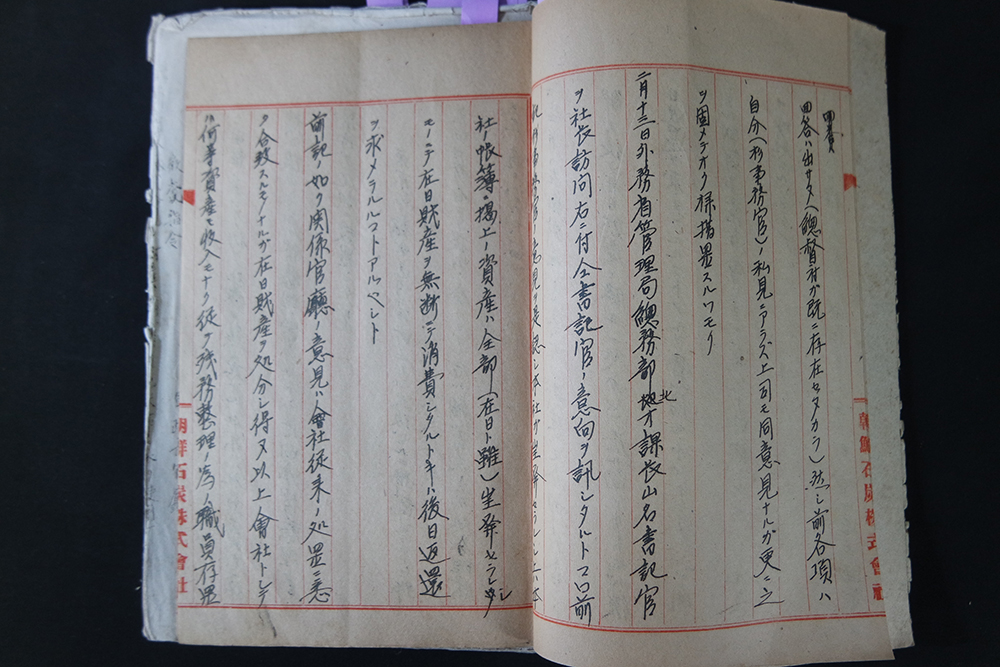 四、貴
回答ハ出サヌ(總督府ガ既ニ存在セヌカラ)然シ前各項ハ
自分(杉事務官)ノ私見ニアラズ上司モ同意見ナルガ更ニ之
ヲ固メテオク様措置スルツモリ
二月十三日外務省管理局總務部北方課長山名書記官
ヲ社長訪問右ニ付仝書記官ノ意向ヲ訊シタルトコロ前
朝鮮石炭株式會社
社ノ帳簿ニ揚上ノ資産ハ全部(在日ト雖)坐发セラレシ
モノニテ在日財産ヲ無断ニテ消費シタルトキハ後日返還
ヲ求メラルルコトアルベシト
前記ノ如ク関係官廳ノ意見ハ會社従来ノ処置ニ悉
ク合致スルモノナルガ在日財産ヲ処分シ得ヌ以上會社トシテ
ハ何等資産モ收入モナク徒ラニ残務整理ノ為ノ職員存置
朝鮮石炭株式會社